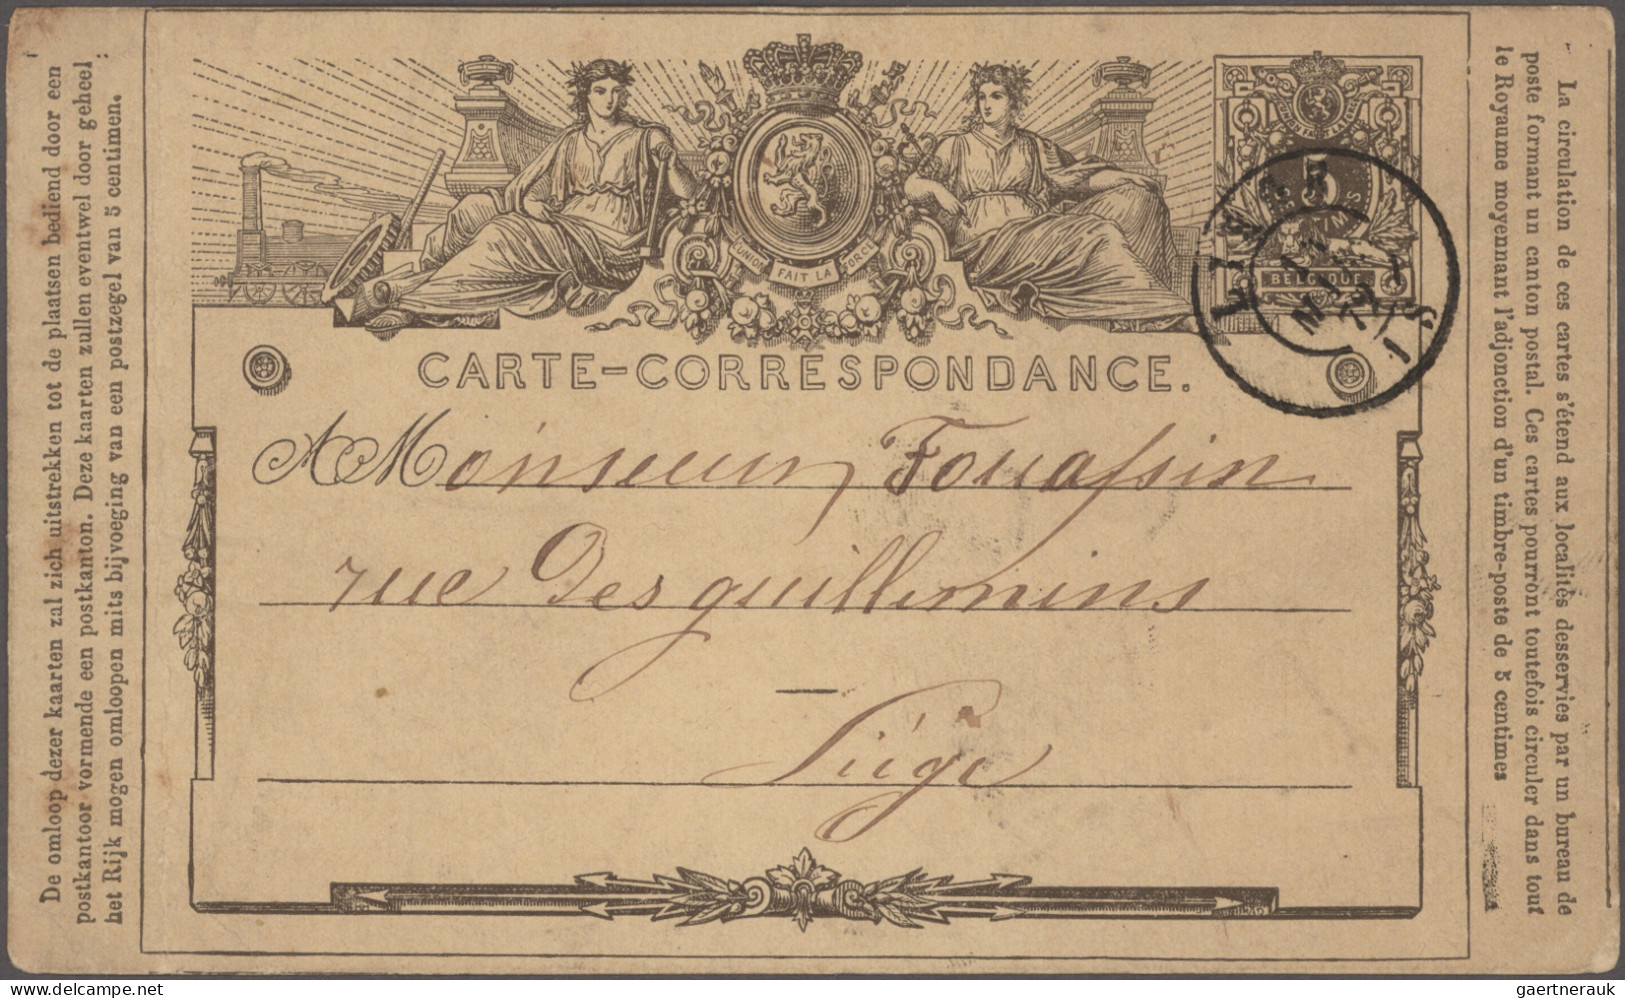 De omloop dezer kaarten zal zich uitstrekken tot de plaatsen bediend door een
postkantoor vormende een postkanton. Deze kaarten zullen eventwel door geheel
het Rijk mogen omloopen mits bijvoeging van een postzegel van 5 centimen.
UNION FAIT LA FORCE
5
BELGIQUE
CARTE-CORRESPONDANCE.
A Monsieur Fouassin
rue Des guillemins
Liége
La circulation de ces cartes s'étend aux localités desservies par un bureau de
poste formant un canton postal. Ces cartes pourront toutefois circuler dans tout
le Royaume moyennant l'adjonction d'un timbre-poste de 5 centimes
delcampe.net
gaertnerauk